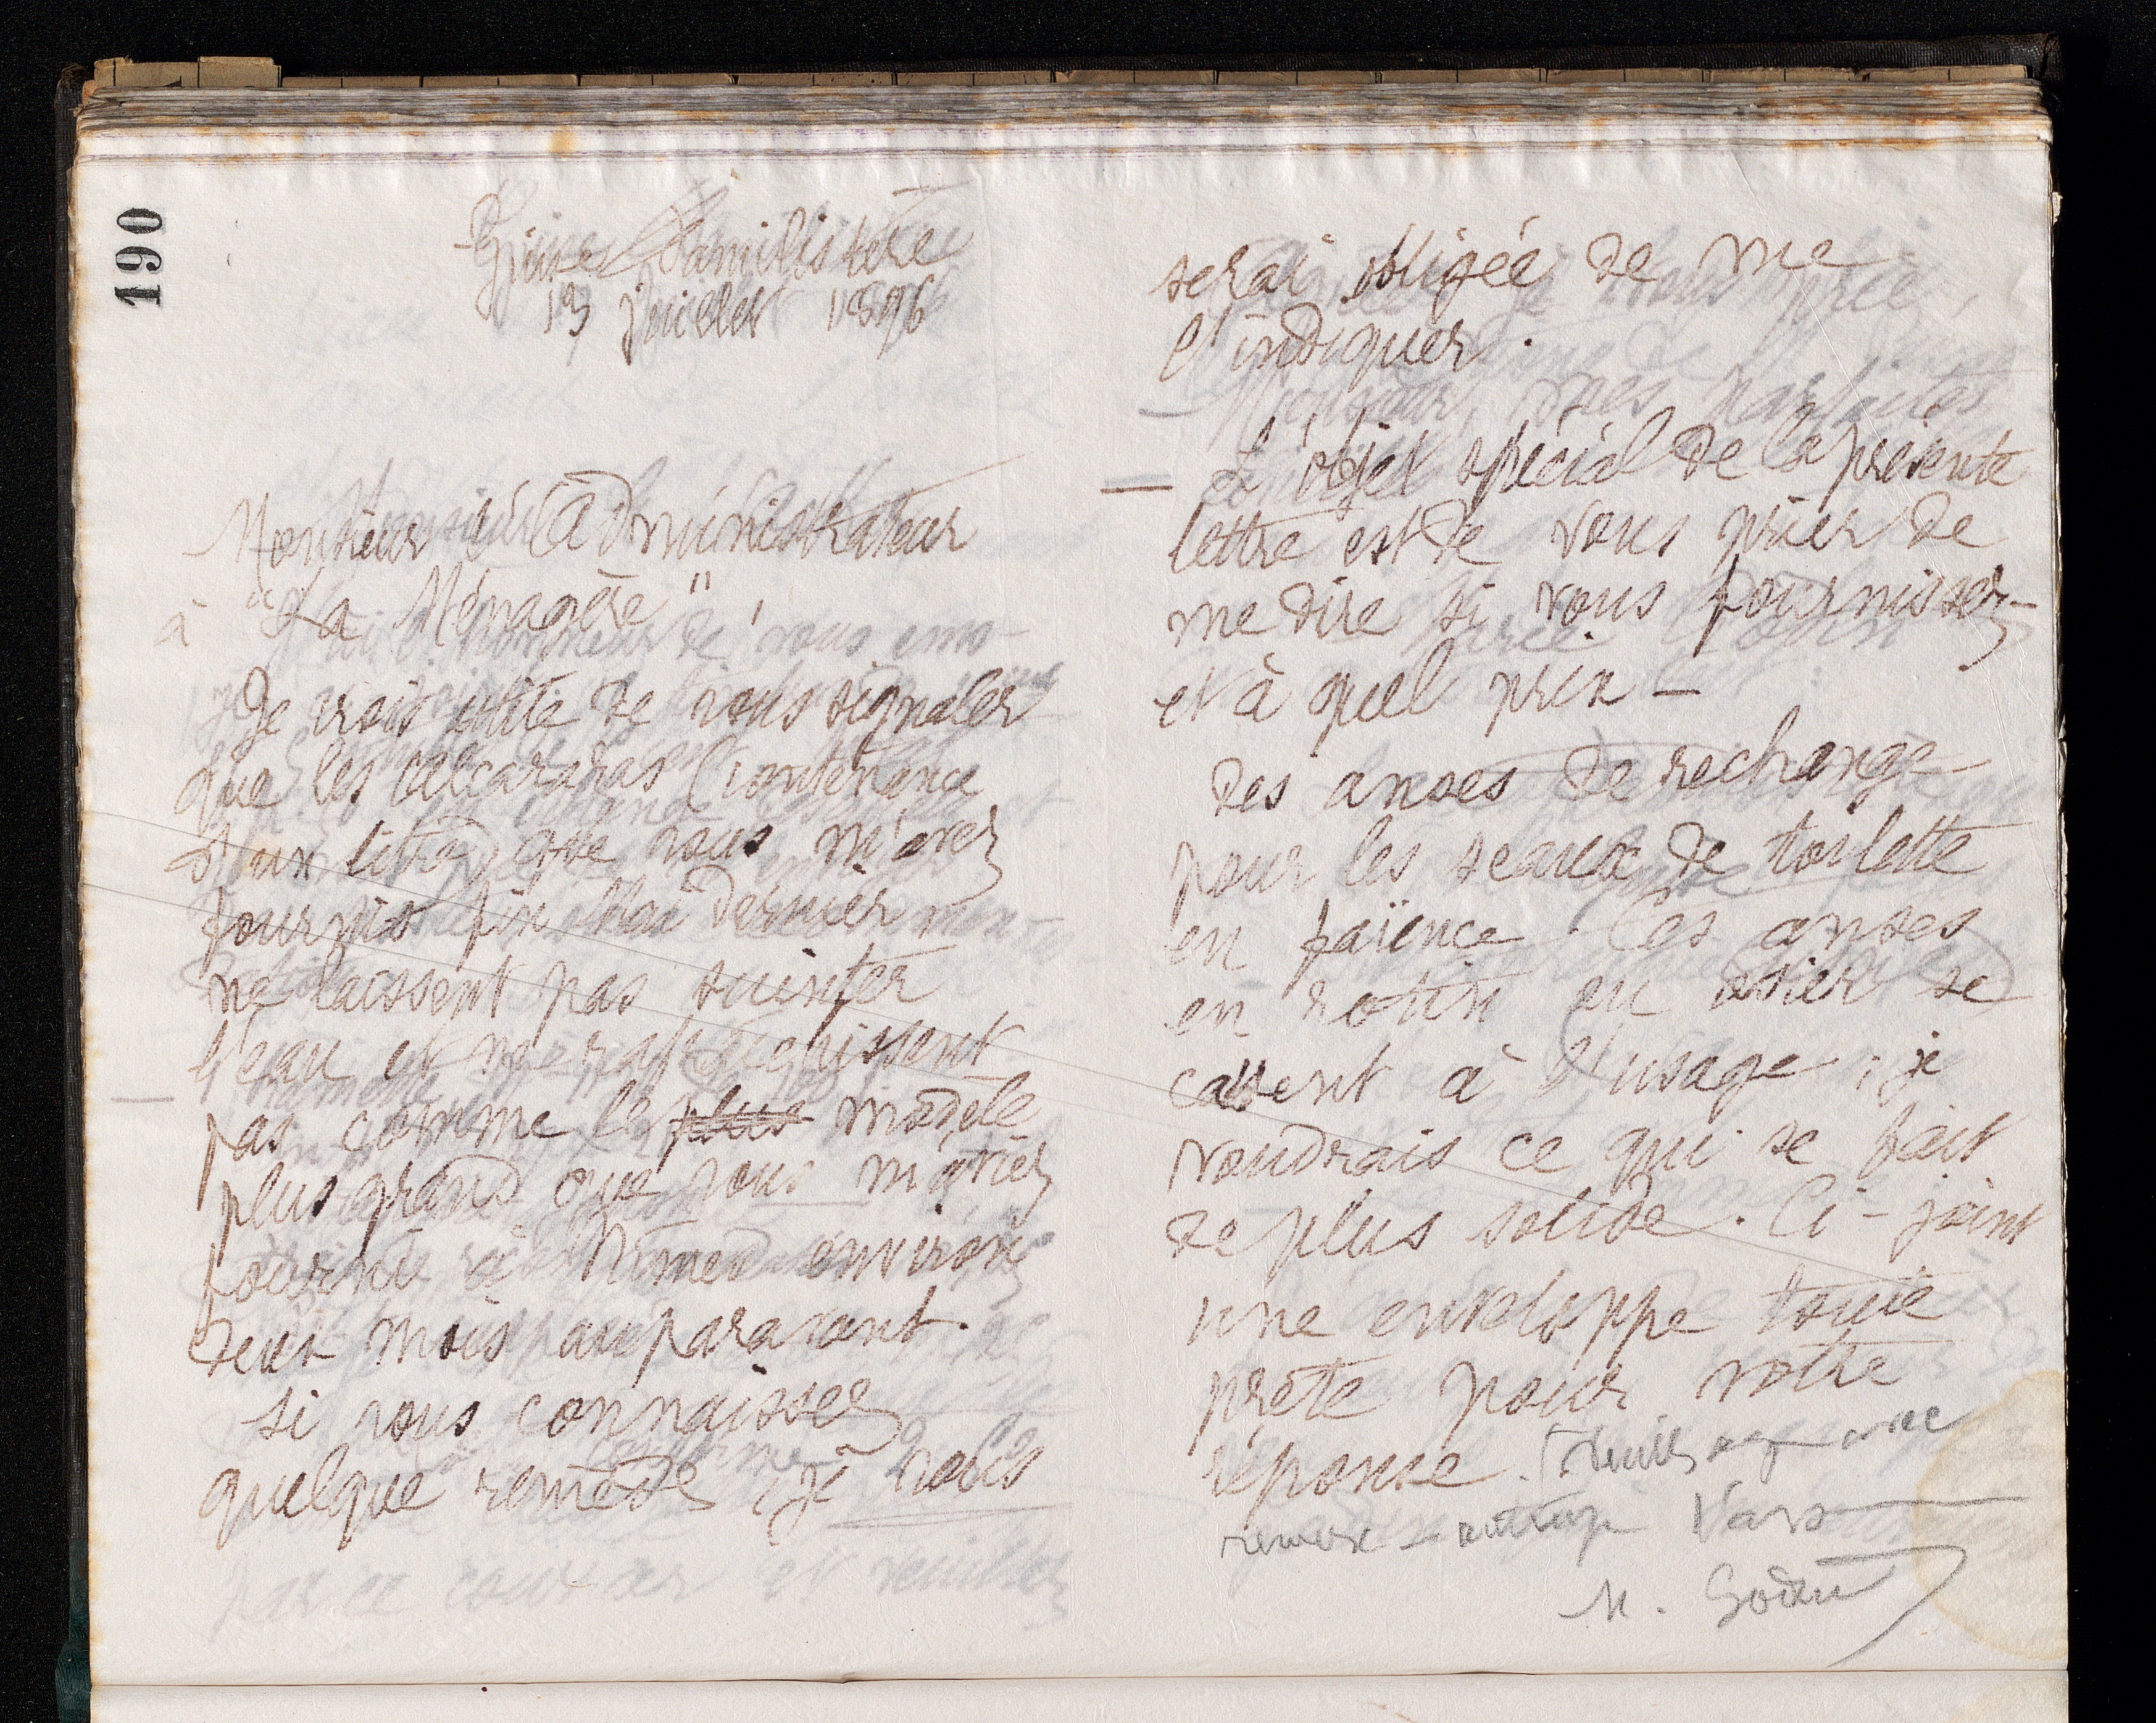 190
Guise Familistère
13 Juillet 1896
Monsieur l'Administrateur
à "La Ménagère"
Je crois utile de vous signaler
que les alcarazas (contenance
d'un litre) que vous m'avez
fournis fin Mai dernier
ne laissent pas suinter
l'eau et ne rafraichissent
pas comme le plus modèle
plus grand que vous m'aviez
fourni à Nîmes environ
deux mois auparavant.
Si vous connaissez
quelque remède, je vous
serai obligée de me
l'indiquer.
L'objet spécial de la présente
lettre est de vous prier de
me dire si vous fournissez -
et à quel prix -
des anses de rechange
pour les seaux de toilette
en faïence. Ces anses
en rotin ou osier se
cassent à l'usage ; je
voudrais ce qui se fait
de plus solide. Ci-joint
une enveloppe toute
prête pour votre
réponse. Veuillez
M. Godin